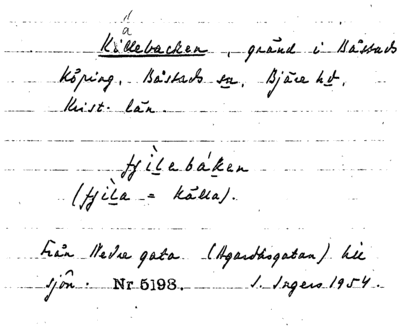 Killebacken, gränd i Båstads
köping, Båstads sn, Bjäre hd,
Krist. län.
(     = källa).
Från Nedre gata (Agardhsgatan) till
sjön. Nr 5193. I. Ingers 1954.